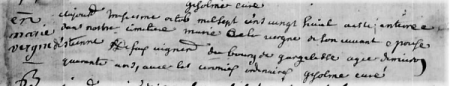 gisolme curé
en aujourd huitiesme octob mil sept cens vingt huict a esté enterrée
marie dans nostre cimetiere marie de la vergne de son vivant epouse
vergne destienne vigneau du bourg de gargeladde agée denviron
quarante ans, avec les ceremonies ordonnées gisolme curé